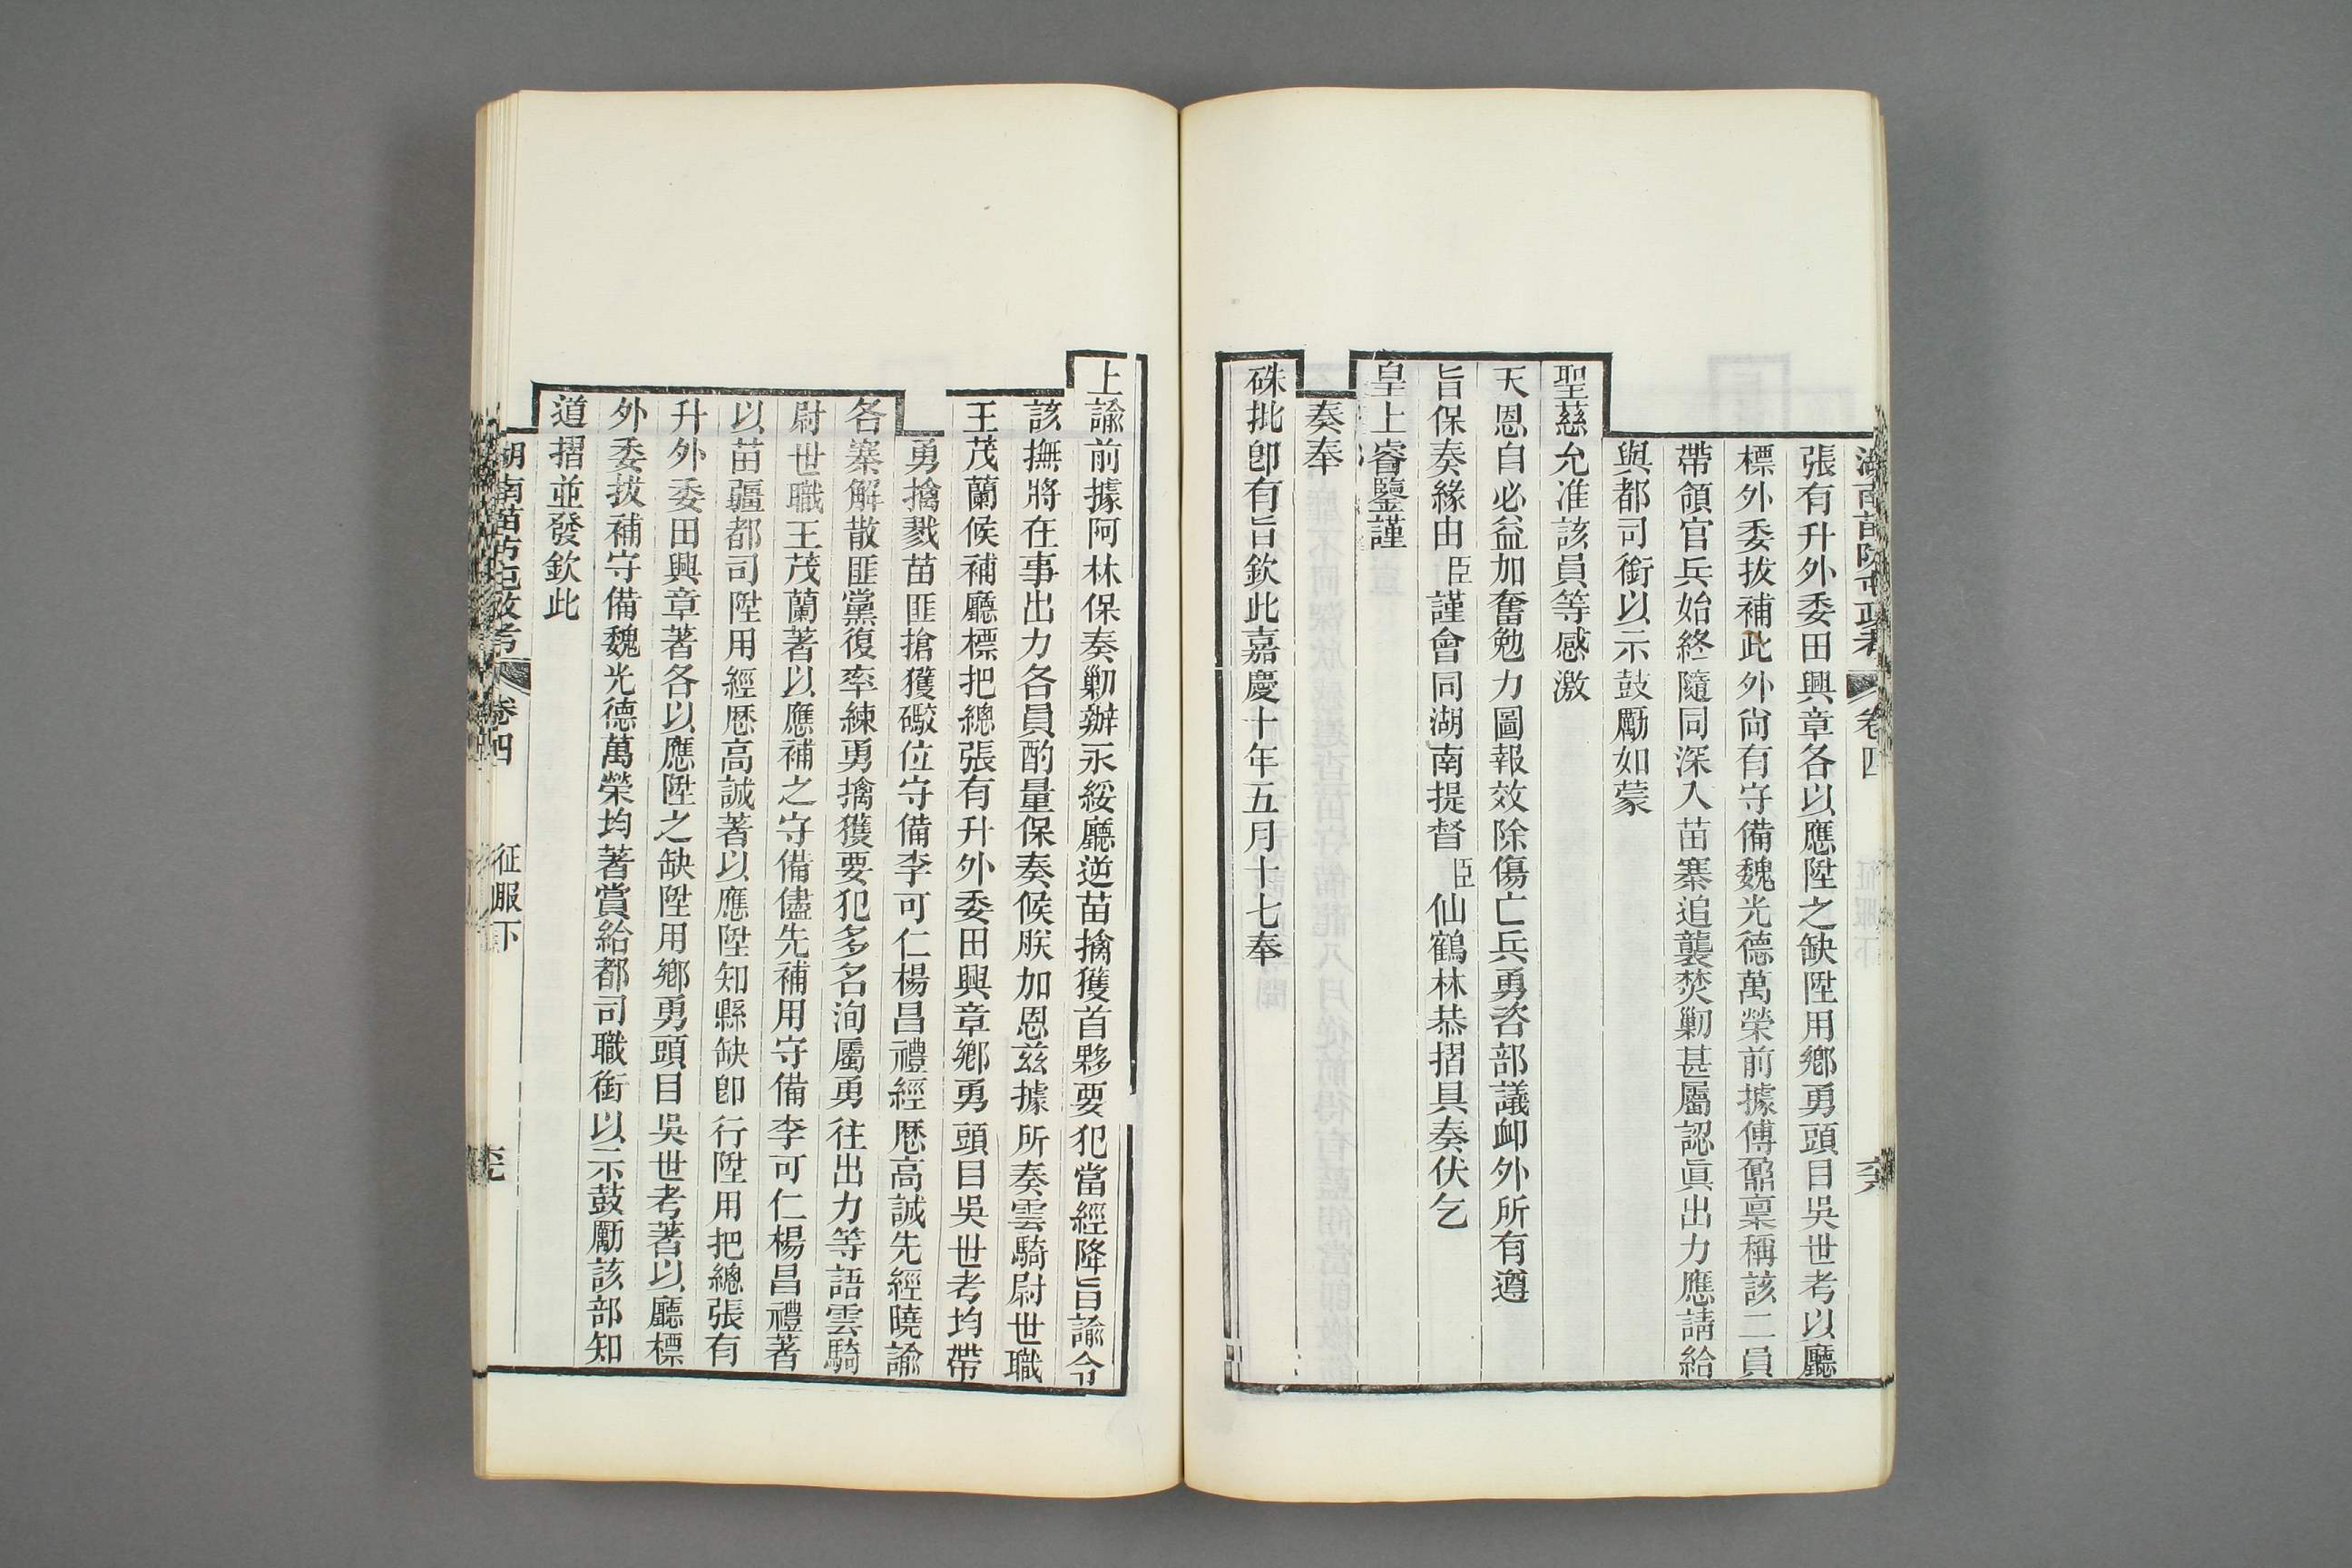 湖南苗防屯政考 卷四
張有升外委田興章各以應陞之缺陞用鄉勇頭目吳世考以廳
標外委拔補此外尙有守備魏光德萬榮前據傅鼐稟稱該二員
帶領官兵始終隨同深入苗寨追襲焚勦甚屬認眞出力應請給
與都司銜以示鼓勵如蒙
聖慈允准該員等感激
天恩自必益加奮勉力圖報效除傷亡兵勇咨部議卹外所有遵
旨保奏緣由臣謹會同湖南提督臣仙鶴林恭摺具奏伏乞
皇上睿鑒謹
奏奉
硃批卽有旨欽此嘉慶十年五月十七奉
上諭前據阿林保奏勦辦永綏廳逆苗擒獲首夥要犯當經降旨諭令
該撫將在事出力各員酌量保奏候朕加恩茲據所奏雲騎尉世職
王茂蘭候補廳標把總張有升外委田興章鄉勇頭目吳世考均帶
勇擒戮苗匪搶獲礮位守備李可仁楊昌禮經歷高誠先經曉諭
各寨解散匪黨復率練勇擒獲要犯多名洵屬勇往出力等語雲騎
尉世職王茂蘭著以應補之守備儘先補用守備李可仁楊昌禮著
以苗疆都司陞用經歷高誠著以應陞知縣缺卽行陞用把總張有
升外委田興章著各以應陞之缺陞用鄉勇頭目吳世考著以廳標
外委拔補守備魏光德萬榮均著賞給都司職銜以示鼓勵該部知
道摺並發欽此
湖南苗防屯政考 卷四 征服下